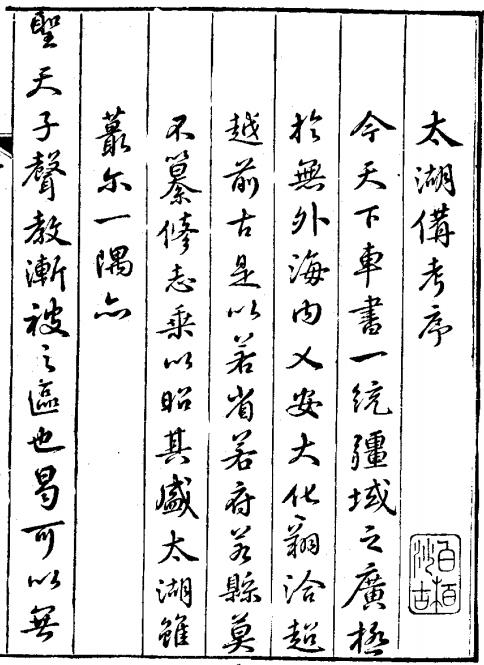 太湖備考序
今天下車書一統疆域之廣極
於無外海内乂安大化翔洽超
越前古是以若省若府若縣莫
不纂修志乘以昭其盛太湖雖
蕞尔一隅亦
聖天子聲教漸被之區也曷可以無